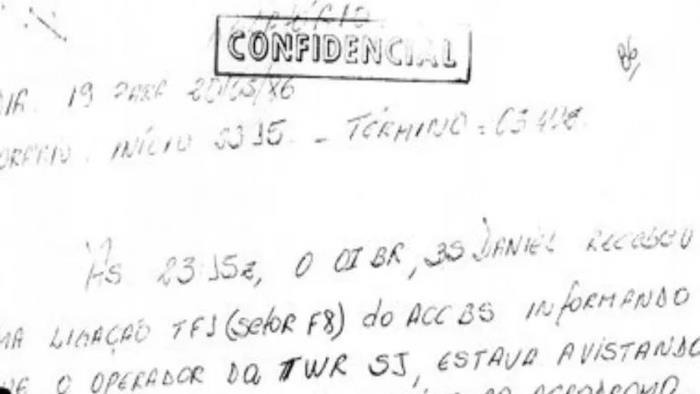 RELATÓRIO
CONFIDENCIAL
DIA. 19 PARA 20/05/86
HORÁRIO. INÍCIO 2315. - TÉRMINO =
ÀS 23:15Z, O OI BR, 3S DANIEL RECEBEU
MA LIGAÇÃO TF1 (setor F8) do ACC BS INFORMANDO
UE O OPERADOR DA TWR SJ, ESTAVA AVISTANDO
AERÓDROMO